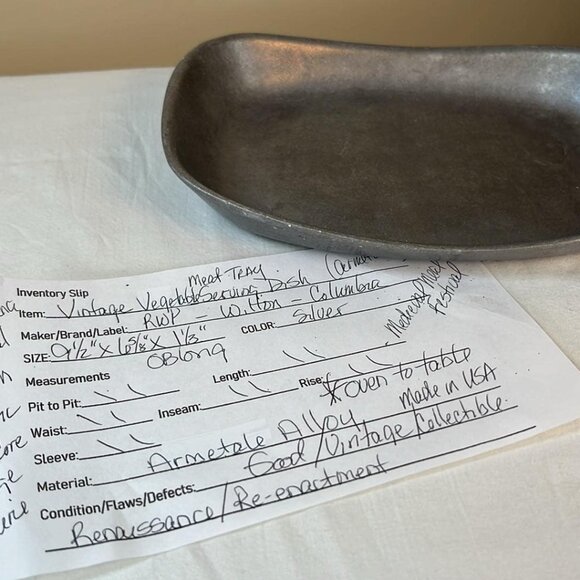 Meat Tray
Inventory Slip
Item: Vintage Vegetable Serving Dish
Maker/Brand/Label: RWP - Wilton - Columbia
SIZE: 9 1/2" x 6 5/8" x 1 1/3" COLOR: Silver
Oblong
Medieval
Festival
Measurements Length: \ \ Rise:
Pit to Pit: \ \ Inseam: \ \ * oven to table
Waist: \ \ Made in USA
Sleeve: \ \
Material: Armetale Alloy
Condition/Flaws/Defects: Good / Vintage Collectible
Renaissance / Re-enactment